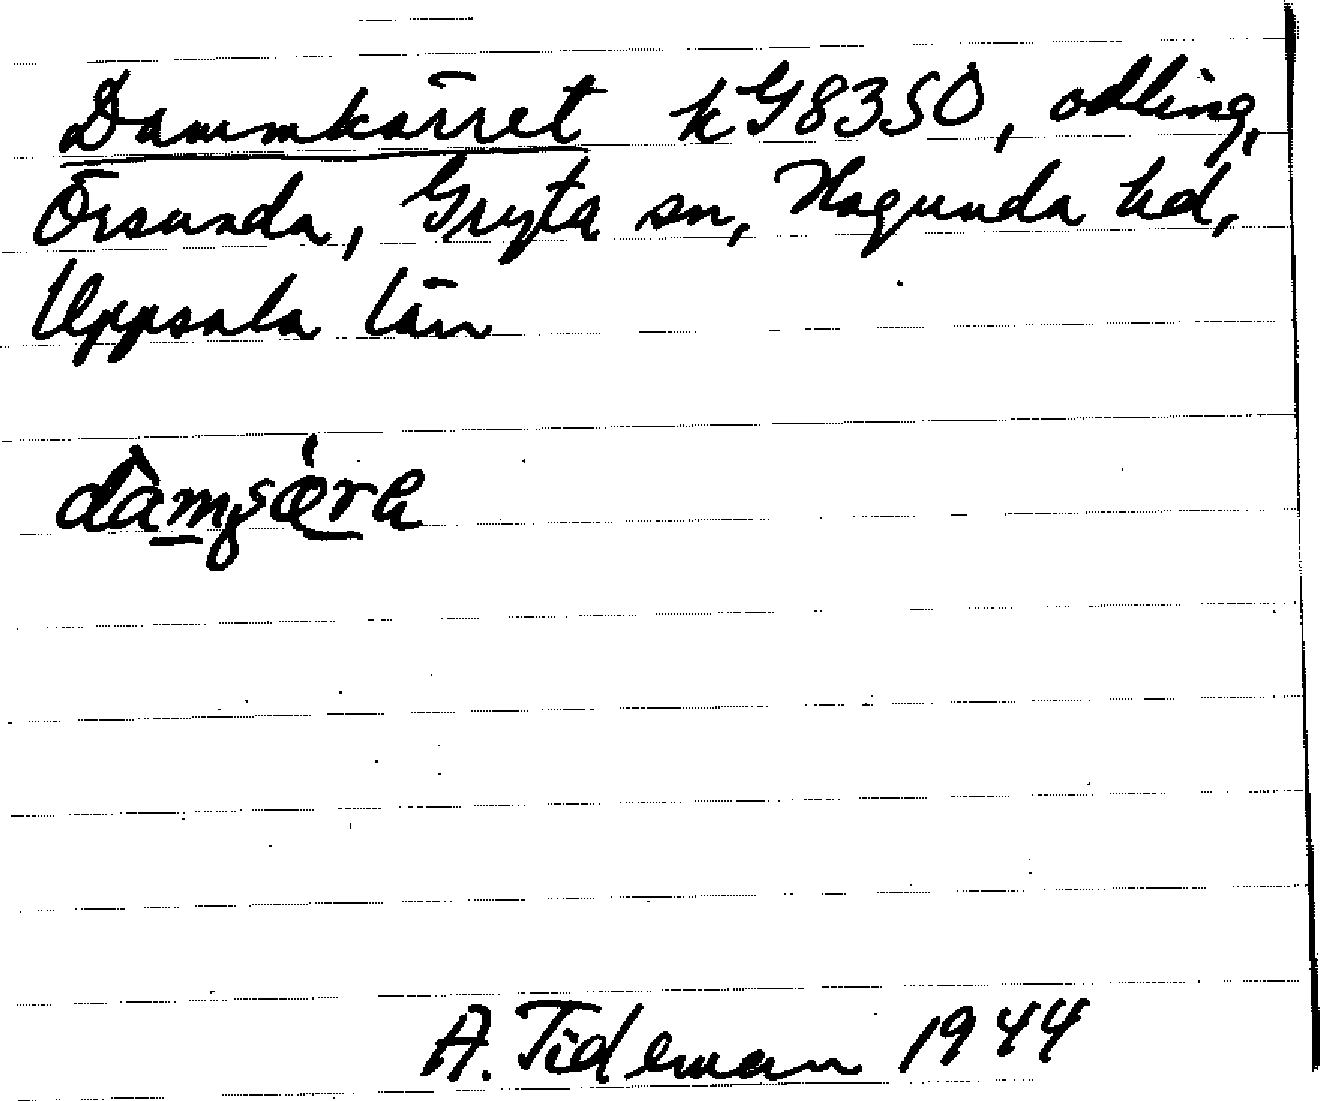 Dammkärret kG8350, odling,
Örsunda, Gryta sn, Hagunda hd,
Uppsala län
dàmʂǽra
A. Tideman 1944